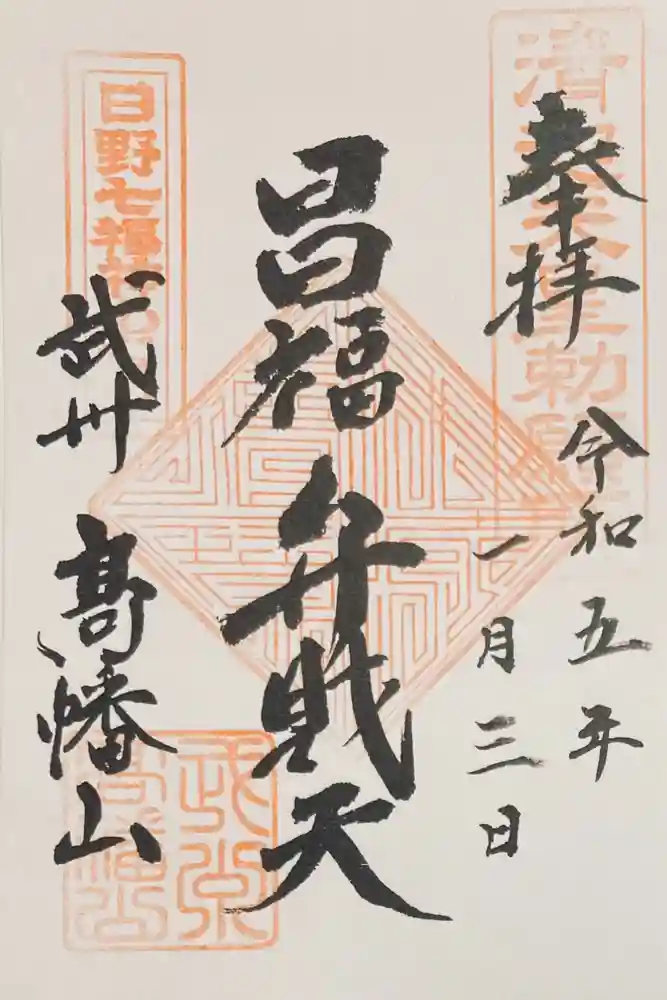 奉拝
令和五年
一月三日
昌福
弁財天
武州 髙幡山
日野七福神